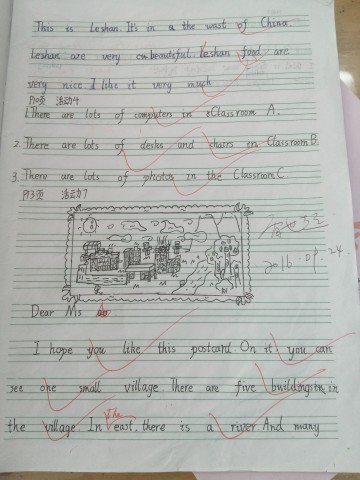 This is Leshan. It's in the west of China
Leshan are very beautiful Leshan food are
very nice I like it very much
P10页 活动4
1. There are lots of computers in Classroom A.
2. There are lots of desks and chairs in Classroom B.
3. There are lots of photos in the Classroom C.
P13页 活动7
2016.09.24
Dear Ms
I hope you like this postcard On it, you can
see one small village There are five buildings in
the village. In the east, there is a river. And many